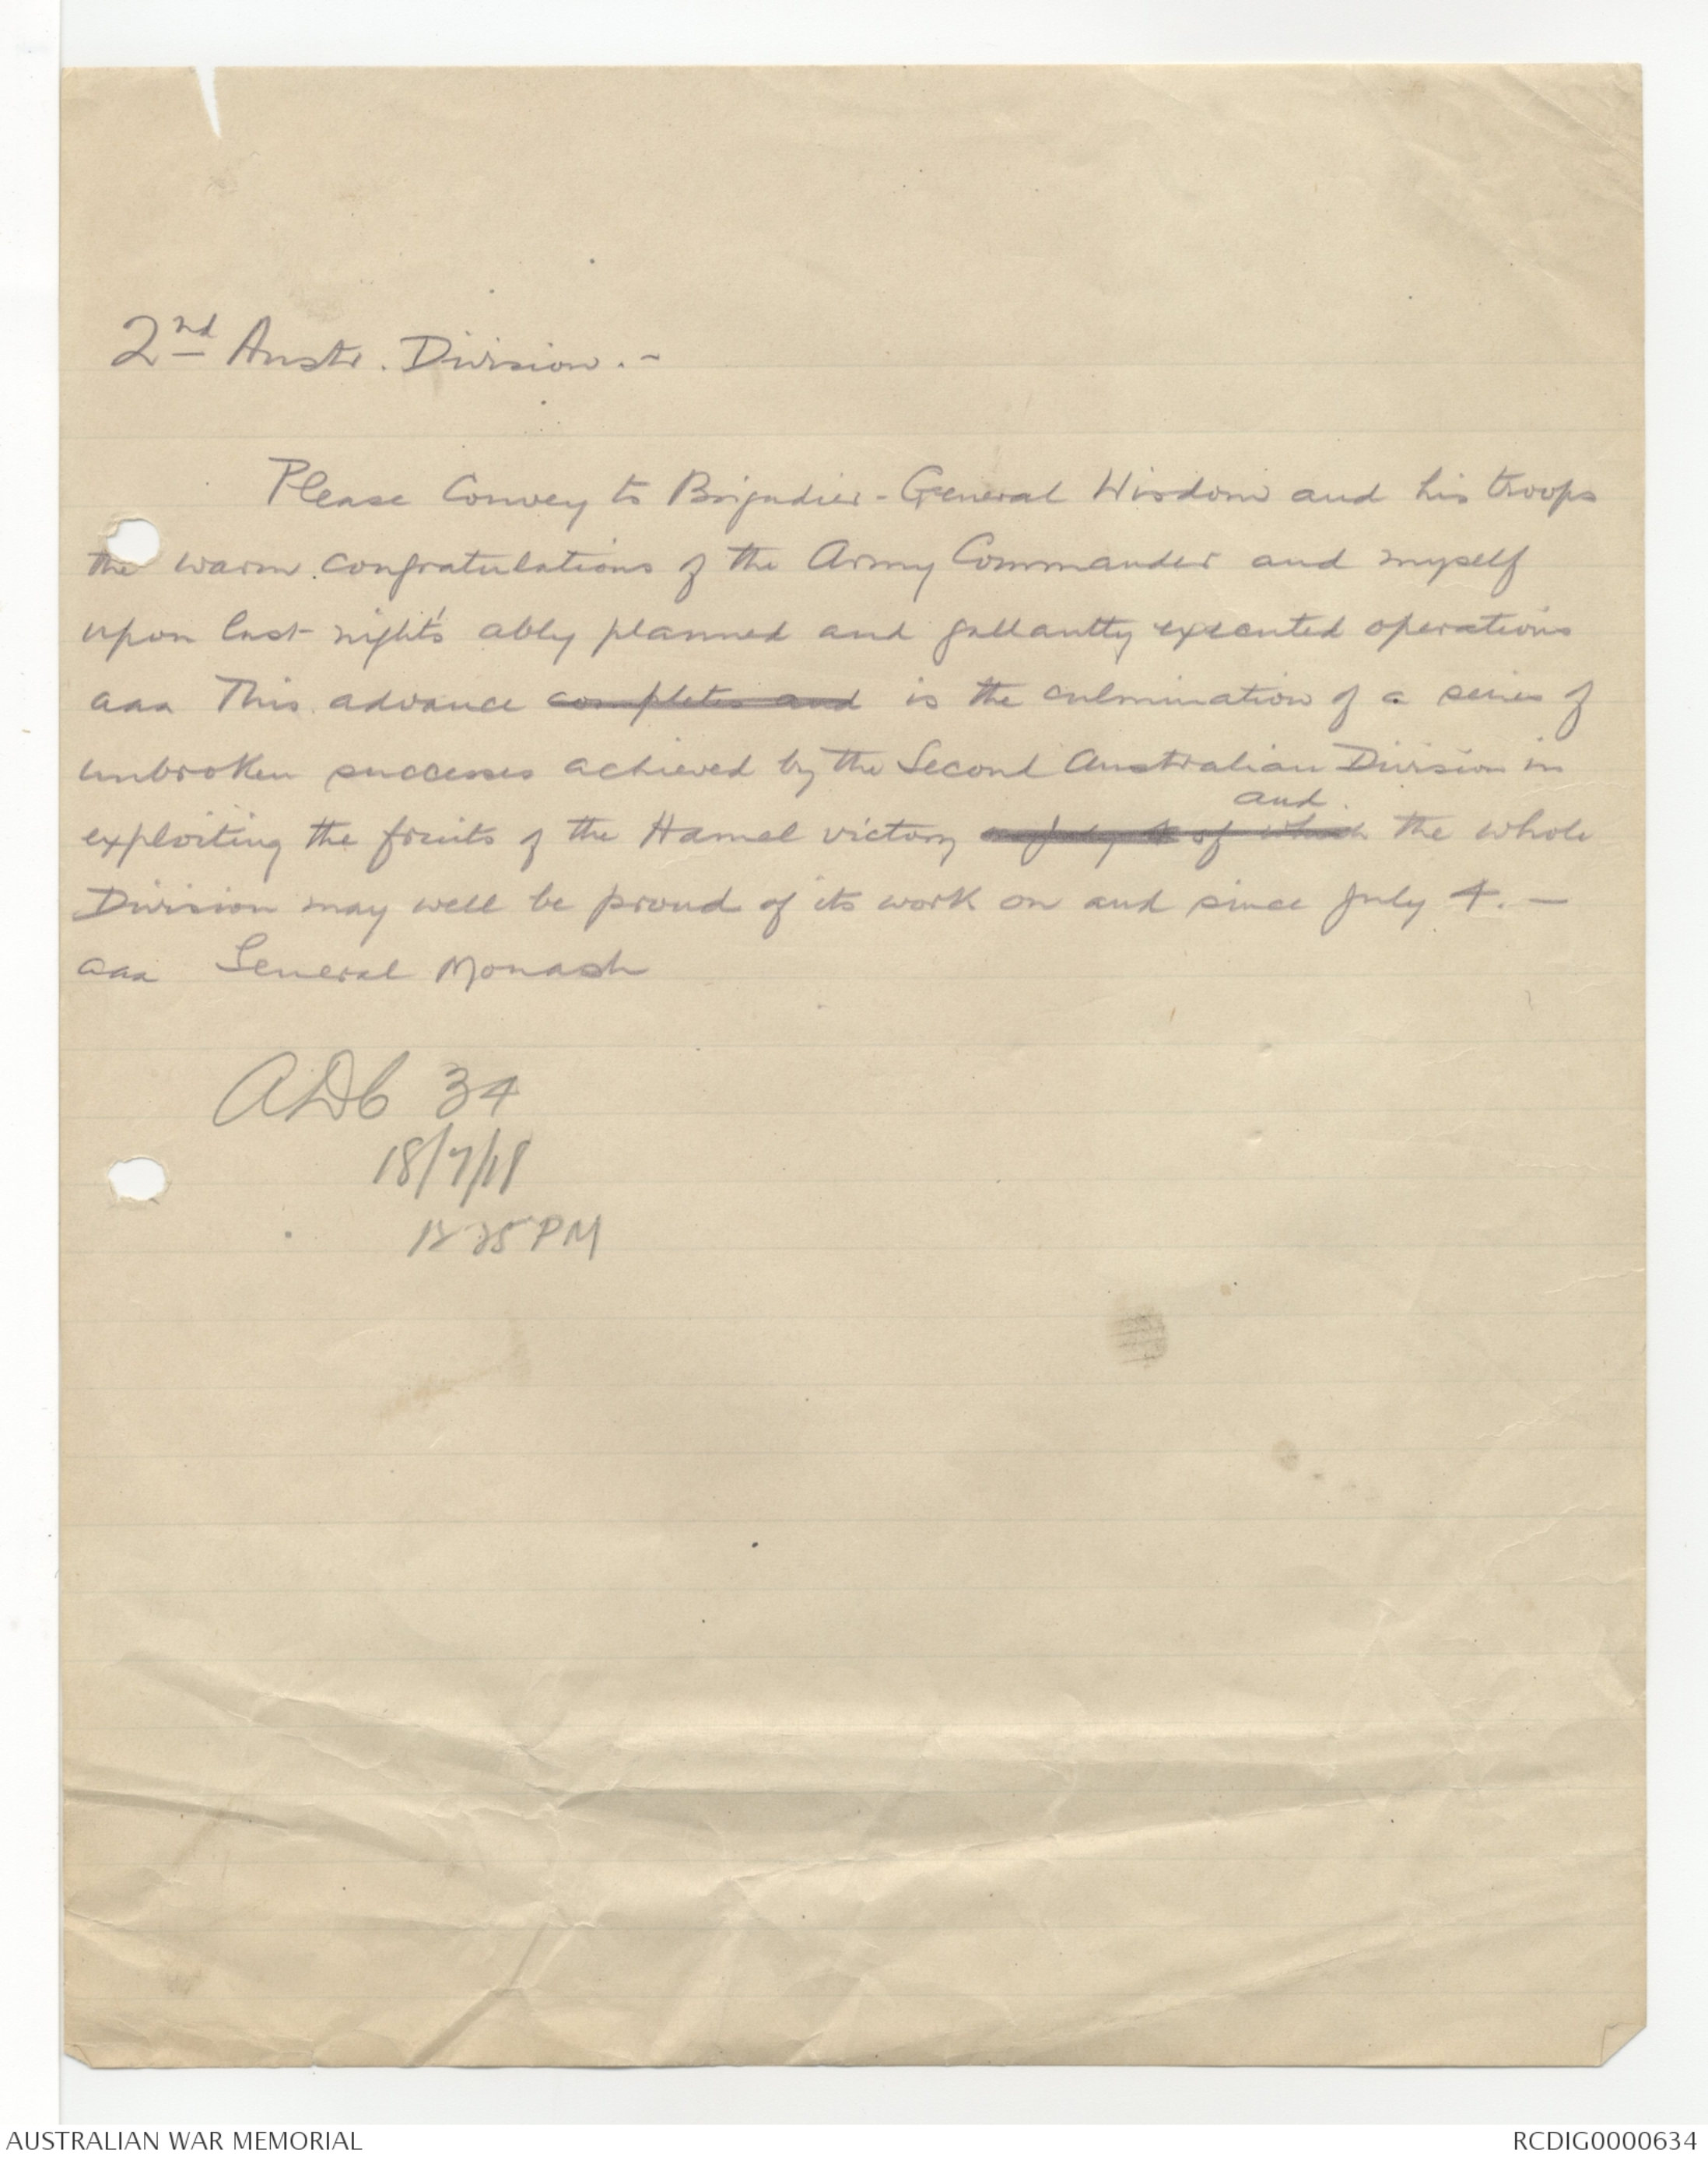 2nd Austr. Division. -
Please Convey to Brigadier-General Wisdom and his troops
the warm congratulations of the Army Commander and myself
upon last night's ably planned and gallantly executed operations
aaa This advance completes and is the culmination of a series of
unbroken successes achieved by the Second Australian Division in
and
exploiting the fruits of the Hamel victory July 4 of which the whole
Division may well be proud of its work on and since July 4. —
aaa General Monash
ADC 34
18/7/18
PM
AUSTRALIAN WAR MEMORIAL
RCDIG0000634